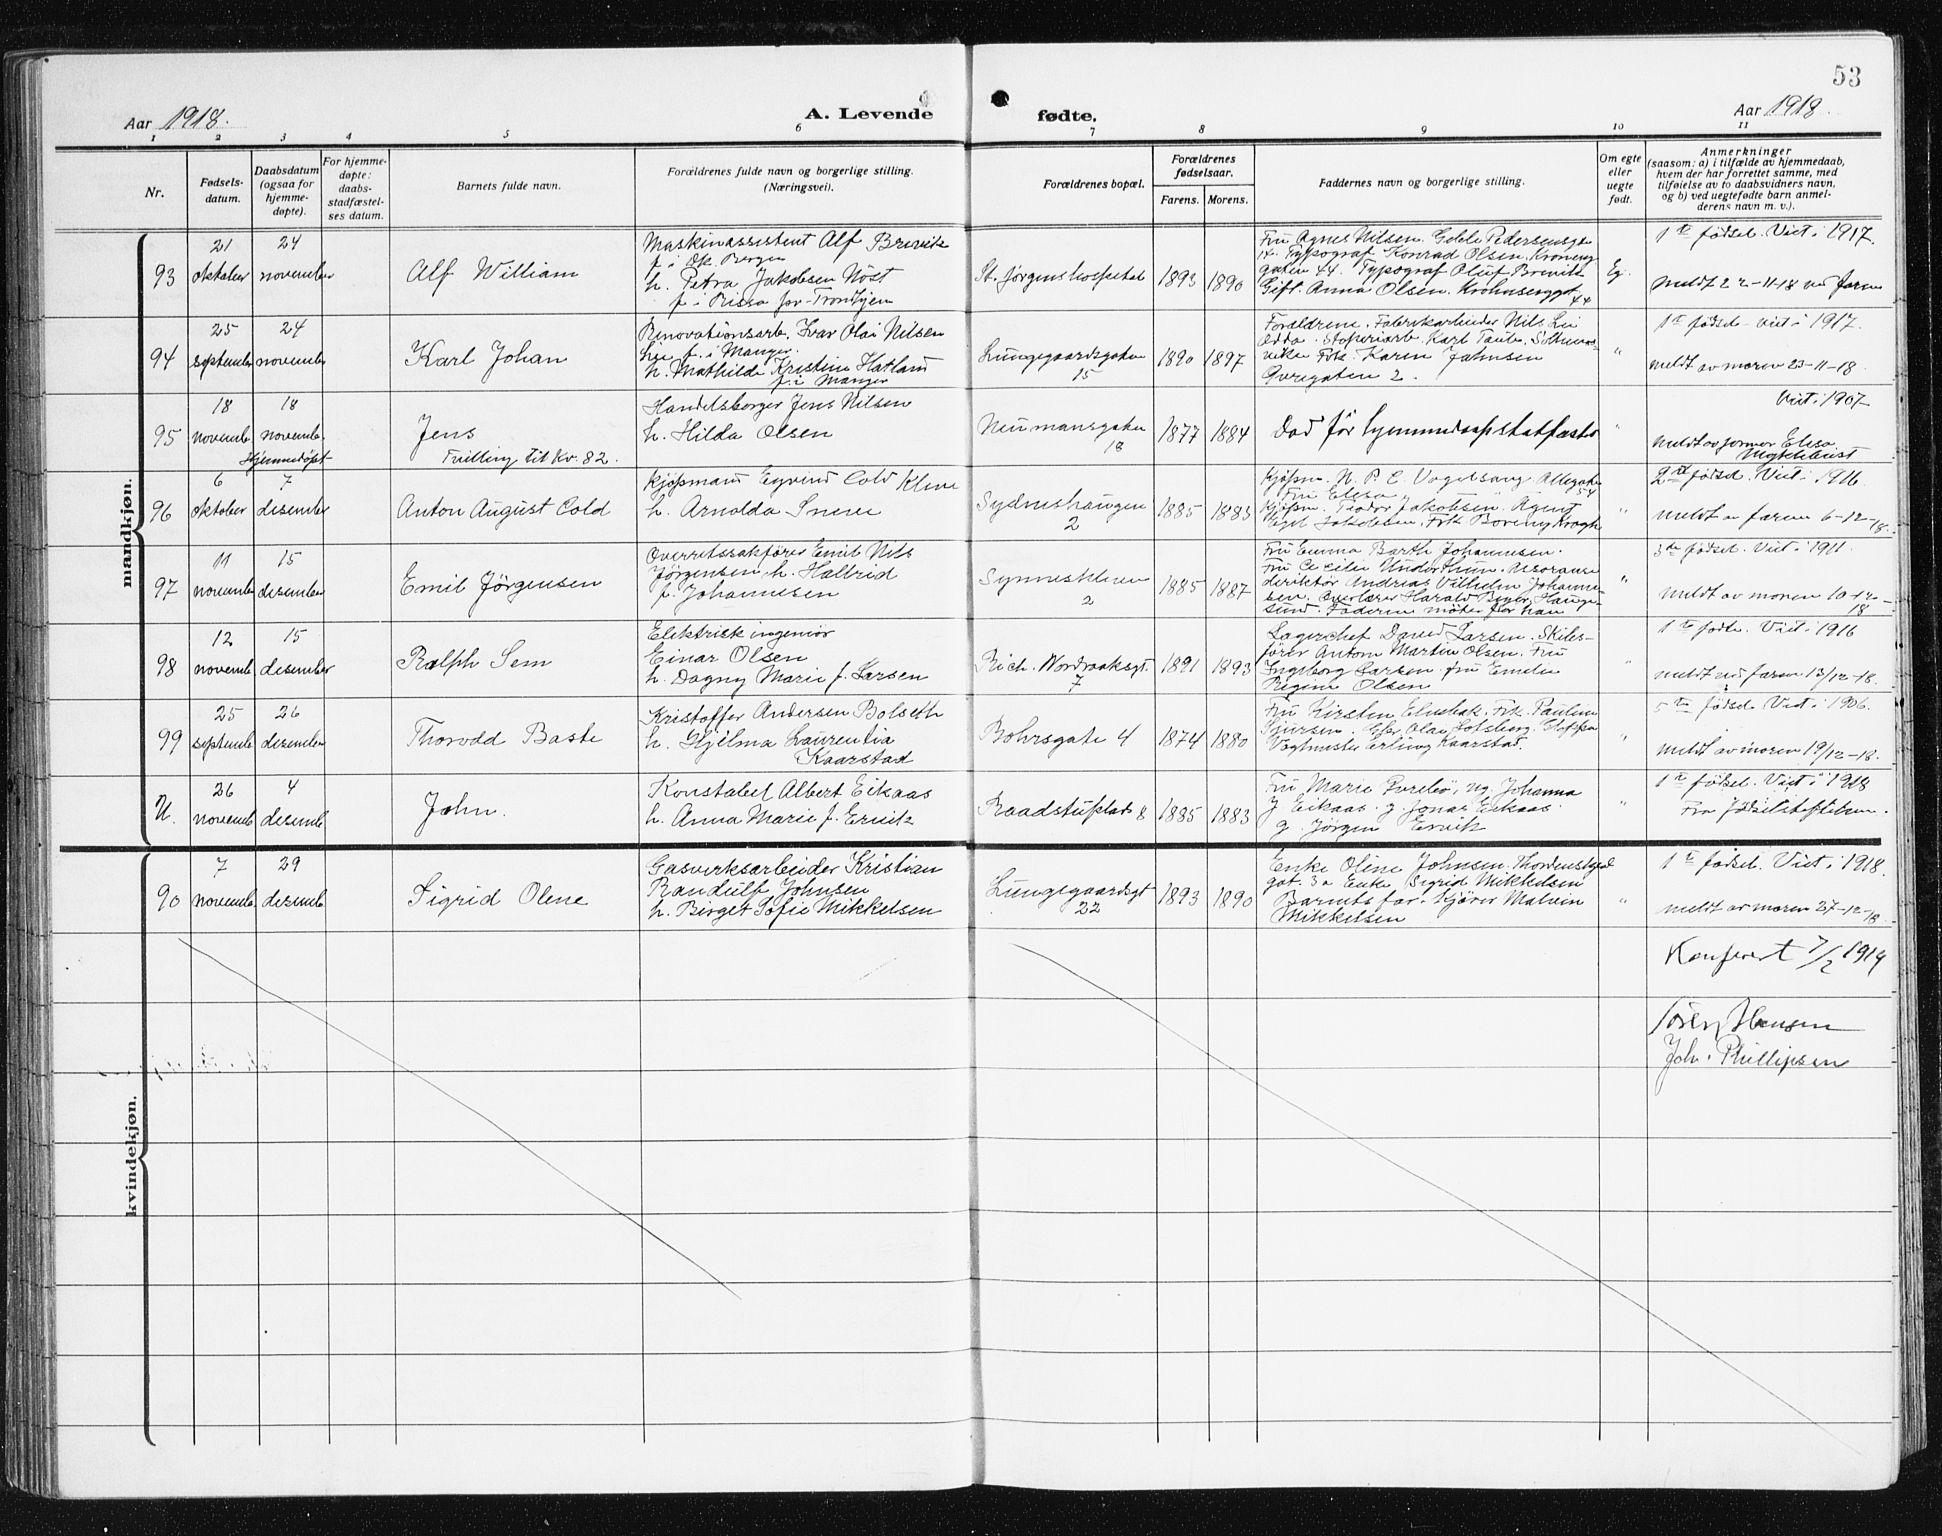 53
Aar 1918.
A. Levende fødte.
Aar 1918.
1 2 3 4 5 6 7 8 9 10 11
Nr.
Fødsels-
datum.
Daabsdatum
(ogsaa for
hjemme-
døpte).
For hjemme-
døpte:
daabs-
stadfæstel-
ses datum.
Barnets fulde navn.
Forældrenes fulde navn og borgerlige stilling.
(Næringsvei).
Forældrenes bopæl.
Forældrenes
fødselsaar.
Farens. Morens.
Faddernes navn og borgerlige stilling.
Om egte
eller
uegte
født.
Anmerkninger
(saasom: a) i tilfælde av hjemmedaab,
hvem der har forrettet samme, med
tilføielse av to daabsvidners navn,
og b) ved uegtefødte barn anmel-
derens navn m. v.).
mandkjøn.
93
21
oktober
24
november
Alf William
Maskinassistent Alf Brevik
f. i Bergen
h. Petra Jakobsen Nöst
f. i Rissa pr. Trondhjem
St. Jørgens hospital
1893 1890
Fru Agnes Nilsen. Gelde Pedersensgt
14. Typograf Konrad Olsen. Kroneng
gaten 44. Typograf Oluf Brevik
Gift. Anna Olsen. Krohnenggt
44
Eg.
1ste födsel. Viet i 1917.
meldt 22-11-18 ved faren
94
25
september
24
november
Karl Johan
Renovationsarb. Ivar Olai Nilsen
Lie f. i Manger.
h. Mathilde Kristine Hatland
f. i Manger
Lungegaardsgaten
15
1890 1897
Forældrene. Fabrikarbeider Nils Lie
Odda. Stoperiarb. Karl Taule, Solheims-
viken Frk. Karen Jahnsen
Øvregaten 2.
"
1ste födsel - viet i 1917.
meldt av moren 23-11-18.
95
18
novemb.
18
novemb.
Hjemmedöpt
Jens
Tvilling til Kv. 82.
Handelsborger Jens Nilsen
h. Hilda Olsen
Neumansgaten
18
1877 1884
Død før hjemmedaapstatfæstes
"
Viet i 1907
meldt av jormor Elisa
Myklebust
96
6
oktober
7
desember
Anton August Cold
Kjöpmand Eyvind Cold Kleve
h. Arnolda Sneve
Sydneshaugen
2
1885 1883
Kjöpm. N. P. E. Vogelsang Allegaten
54
Fru Elisa
Kjöpm. Teodor Jakobsen. Agent
Jakobsen. Frk Borenny Krogh
"
2den födsel. Viet i 1916.
meldt av faren 6-12-18.
97
11
november
15
desember
Emil Jörgensen
Overretssakförer Emil Nils
Jörgensen h. Halbrid
f. Johannesen
Synneskleven
2
1885 1887
Fru Emma Barth Johannesen.
Fru Cecilie Underthun. Assuranse
direktör Andreas Vilhelm Johanne-
sen. Overlærer Harald Beyer, Hauge-
sund. Faderen möter for han
"
3die födsel. Viet i 1911.
meldt av moren 10-12-
18
98
12
novemb.
15
desember
Ralph Sem
Elektrisk ingeniör
Einar Olsen
h. Dagny Marie f. Larsen
Rich. Nordraaksgt.
7
1891 1893
Lagerchef David Larsen. Skibs-
förer Anton Martin Olsen. Fru
Ingeborg Larsen. fru Emelie
Regine Olsen
"
1ste födte. Viet i 1916
meldt ved faren 13/12-18.
99
25
septemb.
26
desember
Thorodd Baste
Kristoffer Andersen Bolseth
h. Hjelma Laurentia
Kaarstad
Bohrsgate 4
1874 1880
Fru Kirsten Elnebak. Frk. Pauline
Sjursen. Olai Totsberg.
Vogtmester Erling Kaarstad.
5te födsel. Viet i 1906.
meldt av moren 19/12-18.
U.
26
novemb.
4
desemb.
John.
Konstabel Albert Eikaas
h. Anna Marie f. Ervik
Raadstuplads 8
1885 1883
Fru Marie Purebö, ug. Johanna
J Eikaas. g. Jonas Eikaas.
g. Jörgen Ervik
"
1ste födsel. Viet i 1918
Fra födselstiftelsen.
kvindekjøn.
90
7
novemb.
29
desemb.
Sigrid Olene
Gasverksarbeider Kristian
Randulf Johnsen
h. Birget Sofie Mikkelsen
Lungegaardsgt
22
1893 1890
Enke Oline Johnsen.
gat. 3a Enke Sigrid Mikkelsen
Barnets far. Kjörer Malvin
Mikkelsen
"
1ste födsel. Viet i 1918.
meldt av moren 27-12-18.
Konferert 7/2 1919
Sören Hansen
Joh. Phillipsen